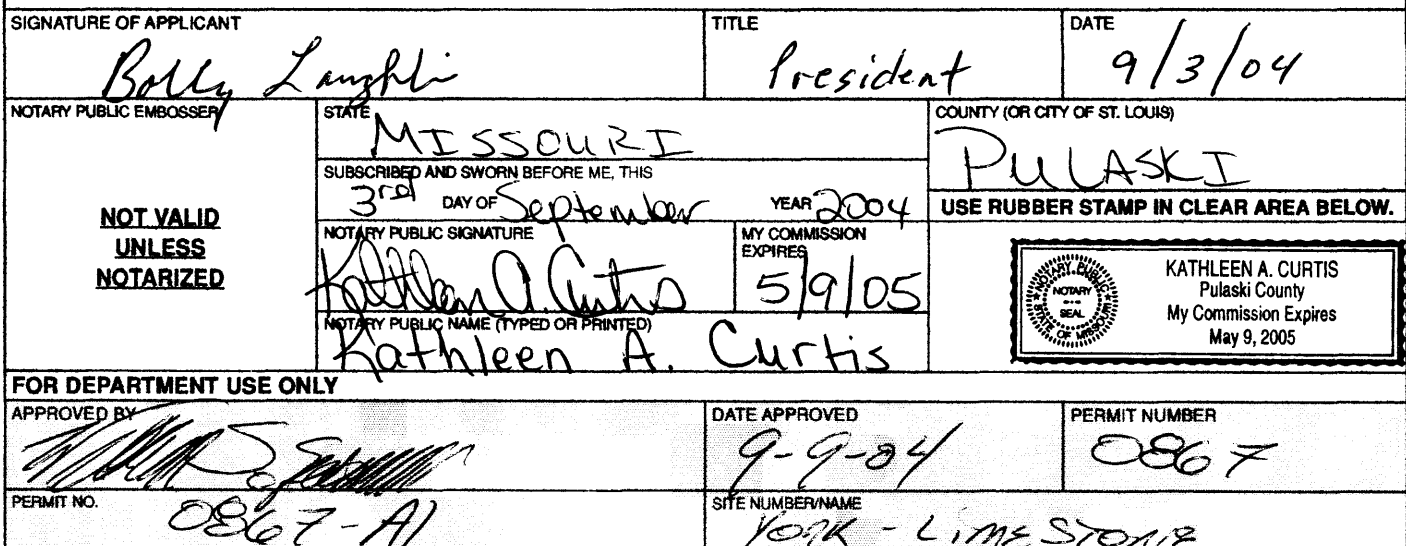 SIGNATURE OF APPLICANT
Laughlin
TITLE
President
DATE
9/3/04
NOTARY PUBLIC EMBOSSER
NOT VALID
UNLESS
NOTARIZED
STATE
MISSOURI
COUNTY (OR CITY OF ST. LOUIS)
PULASKI
SUBSCRIBED AND SWORN BEFORE ME, THIS
3rd DAY OF September YEAR 2004
USE RUBBER STAMP IN CLEAR AREA BELOW.
NOTARY PUBLIC SIGNATURE
Kathleen A. Curtis
MY COMMISSION
EXPIRES
5/9/05
NOTARY PUBLIC NAME (TYPED OR PRINTED)
Kathleen A. Curtis
NOTARY PUBLIC
NOTARY
SEAL
STATE OF MISSOURI
KATHLEEN A. CURTIS
Pulaski County
My Commission Expires
May 9, 2005
FOR DEPARTMENT USE ONLY
APPROVED BY
DATE APPROVED
9-9-04
PERMIT NUMBER
0867
PERMIT NO.
0867-A1
SITE NUMBER/NAME
YORK - LIMESTONE